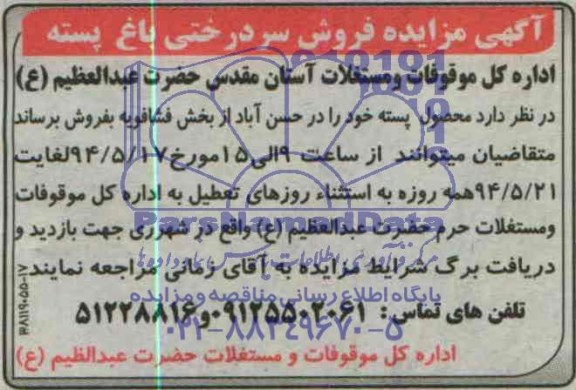 آگهی مزایده فروش سردرختی باغ پسته
اداره کل موقوفات ومستغلات آستان مقدس حضرت عبدالعظیم (ع)
در نظر دارد محصول پسته خود را در حسن آباد از بخش فشافویه بفروش برساند
متقاضیان میتوانند از ساعت ۹الی۱۵مورخ۹۴/۵/۱۷لغایت
۹۴/۵/۲۱همه روزه به استثناء روزهای تعطیل به اداره کل موقوفات
ومستغلات حرم حضرت عبدالعظیم (ع) واقع در شهرری جهت بازدید و
دریافت برگ شرایط مزایده به آقای زمانی مراجعه نمایند
تلفن های تماس: ۰۹۱۲۵۵۰۲۰۶۱و۵۱۲۲۸۸۱۶
اداره کل موقوفات و مستغلات حضرت عبدالظیم (ع)
۳۸۱۱۹۰۵۵-۱۷
ParsNamadData
پایگاه اطلاع رسانی مناقصه ومزایده
۰۲۱-۸۸۳۴۹۶۷۰-۵